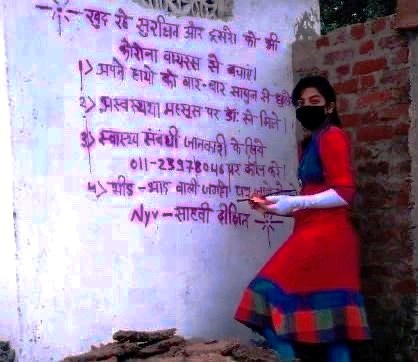 खुद रहे सुरक्षित और दूसरो को भी
कोरोना वायरस से बचाएं।
1) अपने हाथो को बार-बार साबुन से
2) अस्वस्थता महसूस पर डॉ से मिले।
3) स्वास्थ्य संबंधी जानकारी के लिये
011-23978046 पर कॉल करे।
4) भीड़-भाड़ वाली जगहो पर
Nyv - साक्षी दीक्षित